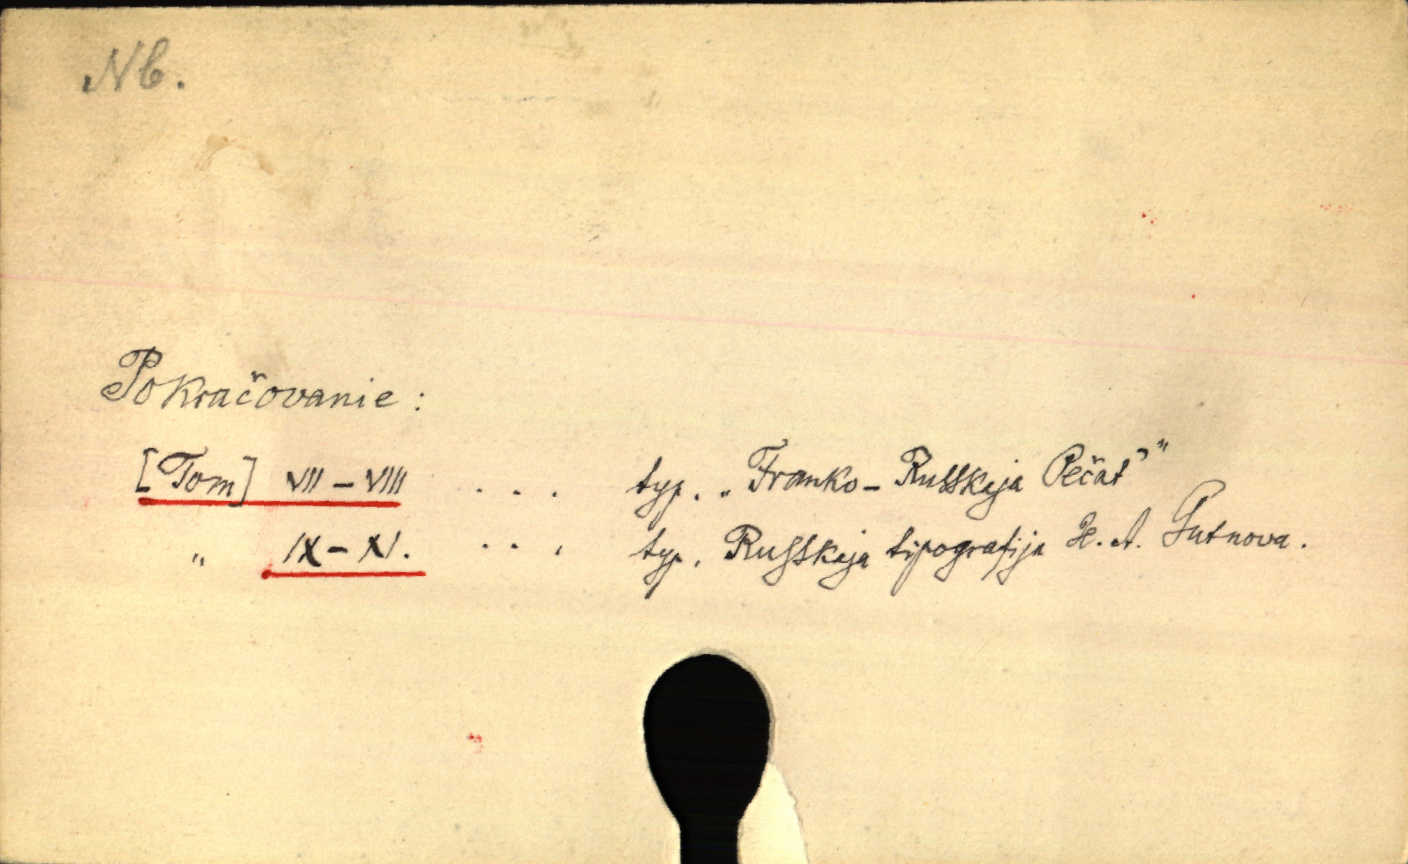 Nb.
Pokračovanie:
[Tom] VII - VIII . . . typ. „Franko-Russkaja Pečat'"
„ IX - XI. . . . typ. Russkaja tipografija H. A. Gutnova.